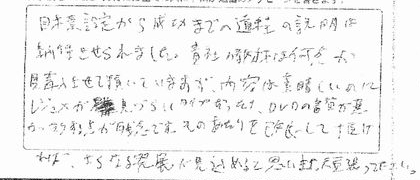 目標設定から成功までの過程の説明は
納得させられました。貴社の教材は何本か
見させて頂いていますが、内容は素晴しいのに
レジュメが見づらいタイプであったり、DVDの音質が悪
かったりな点が残念です。その あたりを改良して頂け
れば、さらなる発展が見込めると思います。